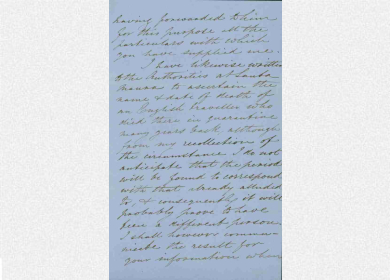 having forwarded to him
for this purpose all the
particulars with which
you have supplied me.
I have likewise written
to the Authorities at Santa
Maura to ascertain the
name & date of death of
an English traveller who
died there in quarantine
many years back although
from my recollection of
the circumstance I do not
anticipate that the period
will be found to correspond
with that already alluded
to, & consequently it will
probably prove to have
been a different person.
I shall however commu
nicate the result for
your information when